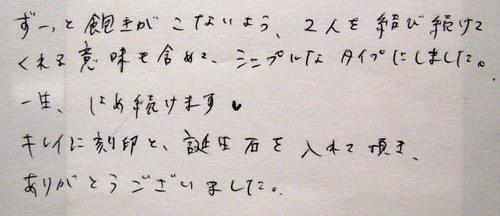 ずーっと飽きがこないよう、2人を結び続けて
くれる意味も含めて、シンプルなタイプにしました。
一生、はめ続けます♥
キレイに刻印と、誕生石を入れて頂き、
ありがとうございました。